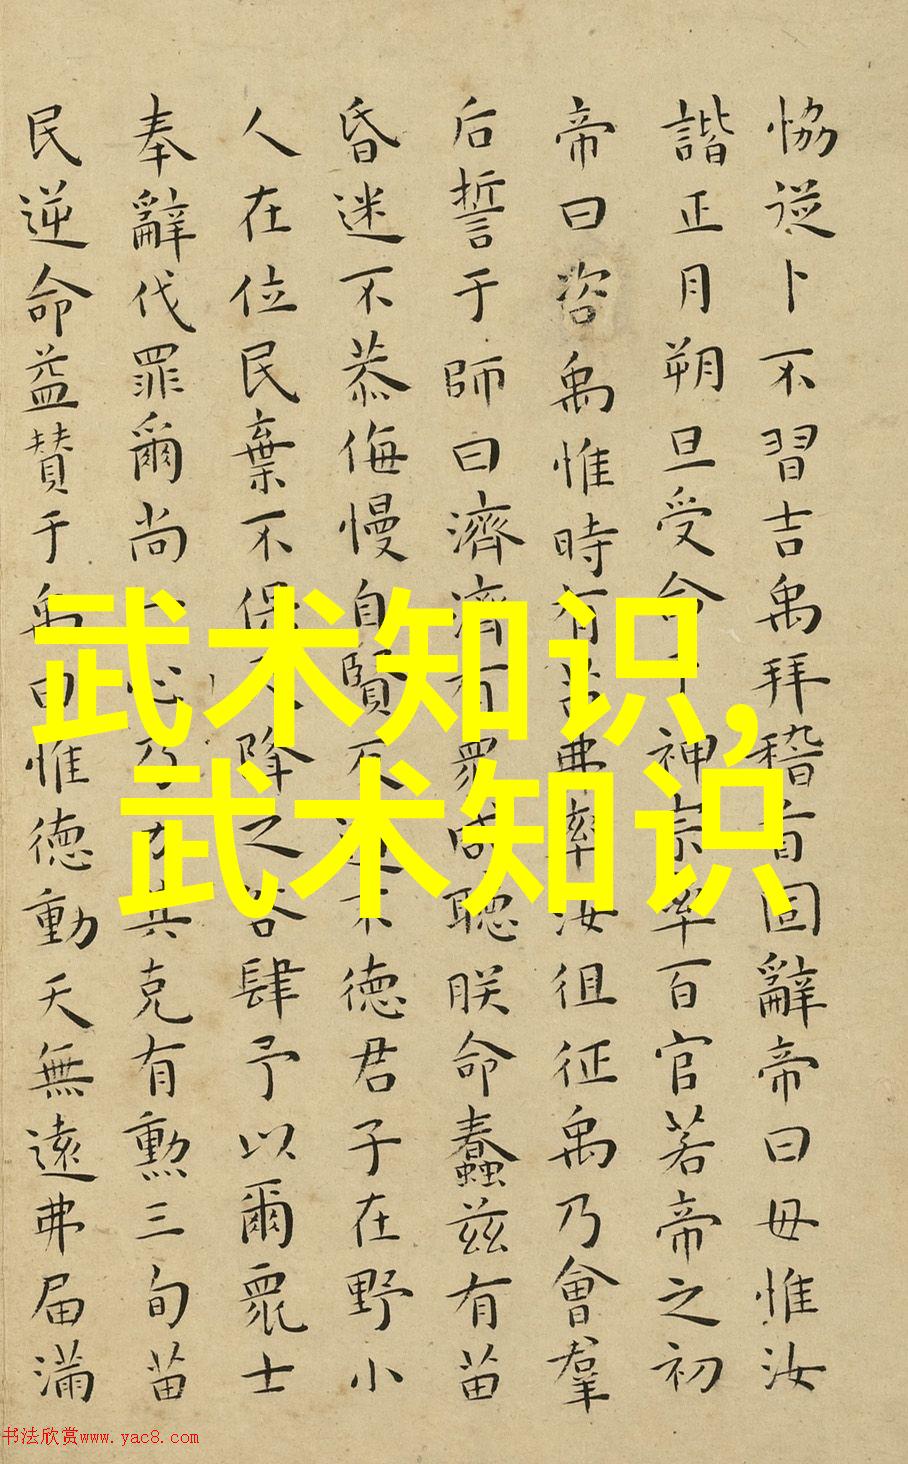 恊從卜不習吉禹拜稽首固辭帝曰毋惟汝
諧正月朔旦受命于神宗率百官若帝之初
帝曰咨禹惟時有苗弗率汝徂征禹乃會羣
后誓于師曰濟濟有眾咸聽朕命蠢茲有苗
昏迷不恭侮慢自賢反道不德君子在野小
人在位民棄不保天降之咎肆予以爾眾士
奉辭伐罪爾尚一心乃力其克有勲三旬苗
民逆命益贊于禹曰惟德動天無遠弗届滿
武术知识,
武术知识
书法欣赏www.yac8.com